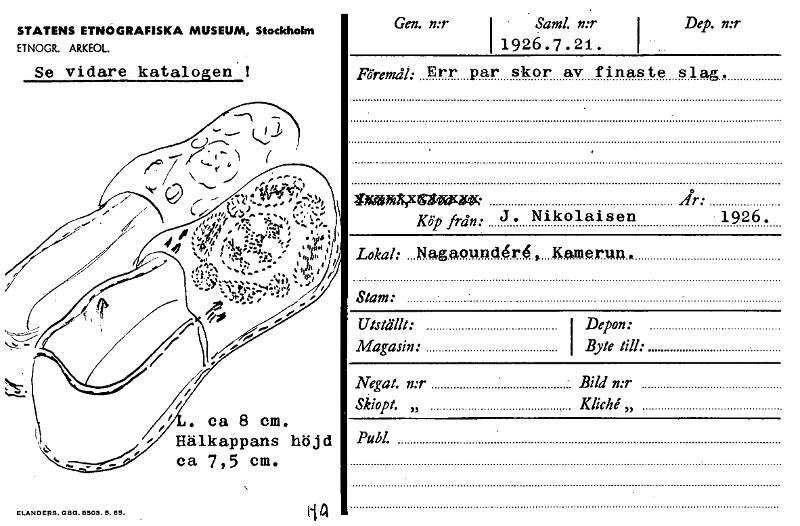 STATENS ETNOGRAFISKA MUSEUM, Stockholm
ETNOGR. ARKEOL.
Se vidare katalogen !
L. ca 8 cm.
Hälkappans höjd
ca 7,5 cm.
ELANDERS, GBG. 8503. 5. 65.
HA
Gen. n:r Saml. n:r Dep. n:r
1926.7.21.
Föremål: Err par skor av finaste slag.
År:
Köp från: J. Nikolaisen 1926.
Lokal: Nagaoundéré, Kamerun.
Stam:
Utställt: Depon:
Magasin: Byte till:
Negat. n:r Bild n:r
Skiopt. „ Kliché „
Publ.